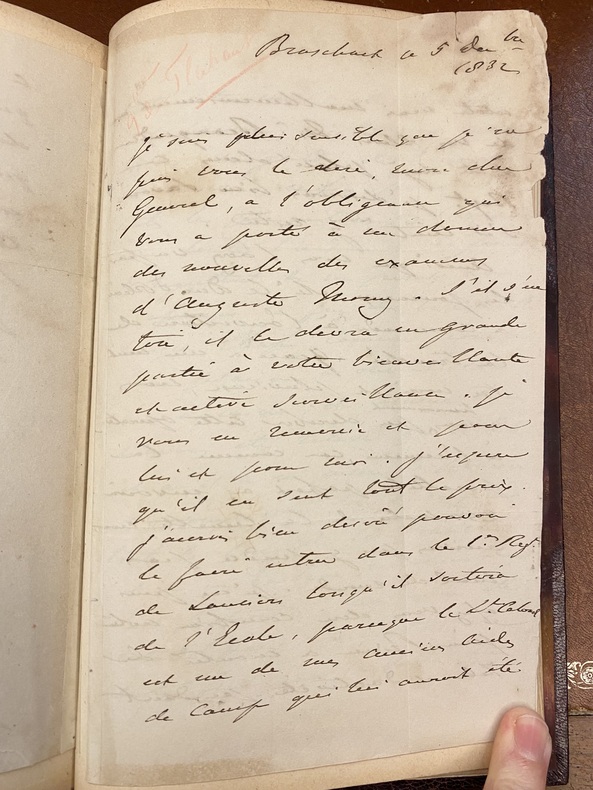 Braschaet le 5 Xbre
1832
je suis plus sensible que je ne
puis vous le dire, mon cher
General, a l'obligeance qui
vous a porté à me donner
des nouvelles des examens
d'Auguste Morny. S'il s'en
tire, il le devra en grande
partie à votre bienveillante
et active surveillance. je
vous en remercie et pour
lui et pour moi. j'espere
qu'il en sent tout le prix.
j'aurois bien desiré pouvoir
le faire entrer dans le 1er Regt
de Lanciers lorsqu'il sortira
de l'Ecole, parceque le Lt Colonel
est un de mes anciens aides
de Camp qui lui auroit été